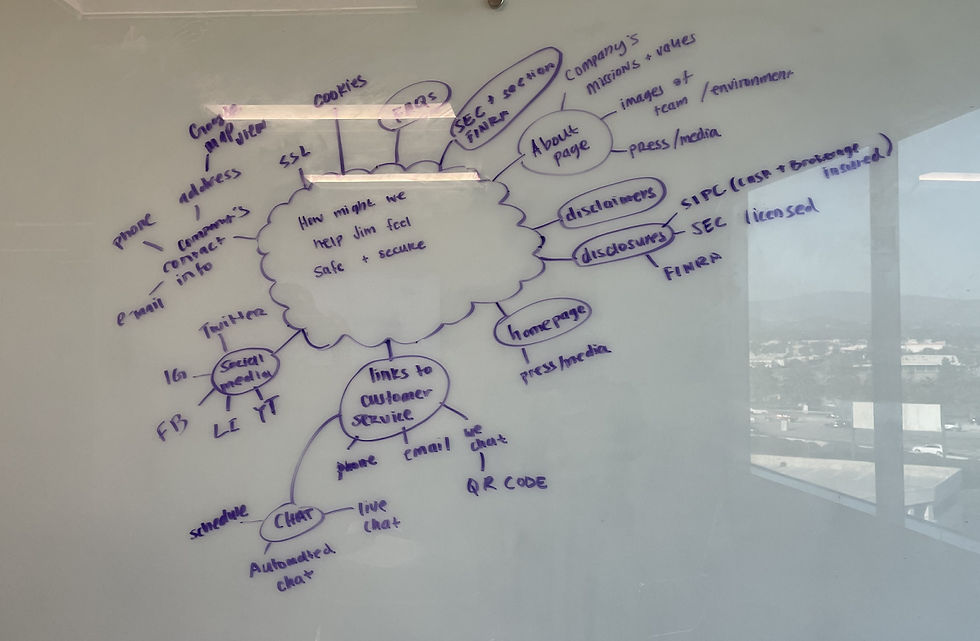 How might we
help Jim feel
safe + secure
SSL
cookies
FAQs
SEC + section
FINRA
About
page
company's
missions + values
images of
team / environment
press/media
disclaimers
disclosures
SIPC (cash + Brokerage
insured)
SEC licensed
FINRA
homepage
press/media
links to
customer
service
phone
email
we
chat
QR CODE
CHAT
live
chat
Automated
chat
schedule
social
media
Twitter
IG
FB
LI
YT
company's
contact
info
address
Google
map
view
phone
e-mail